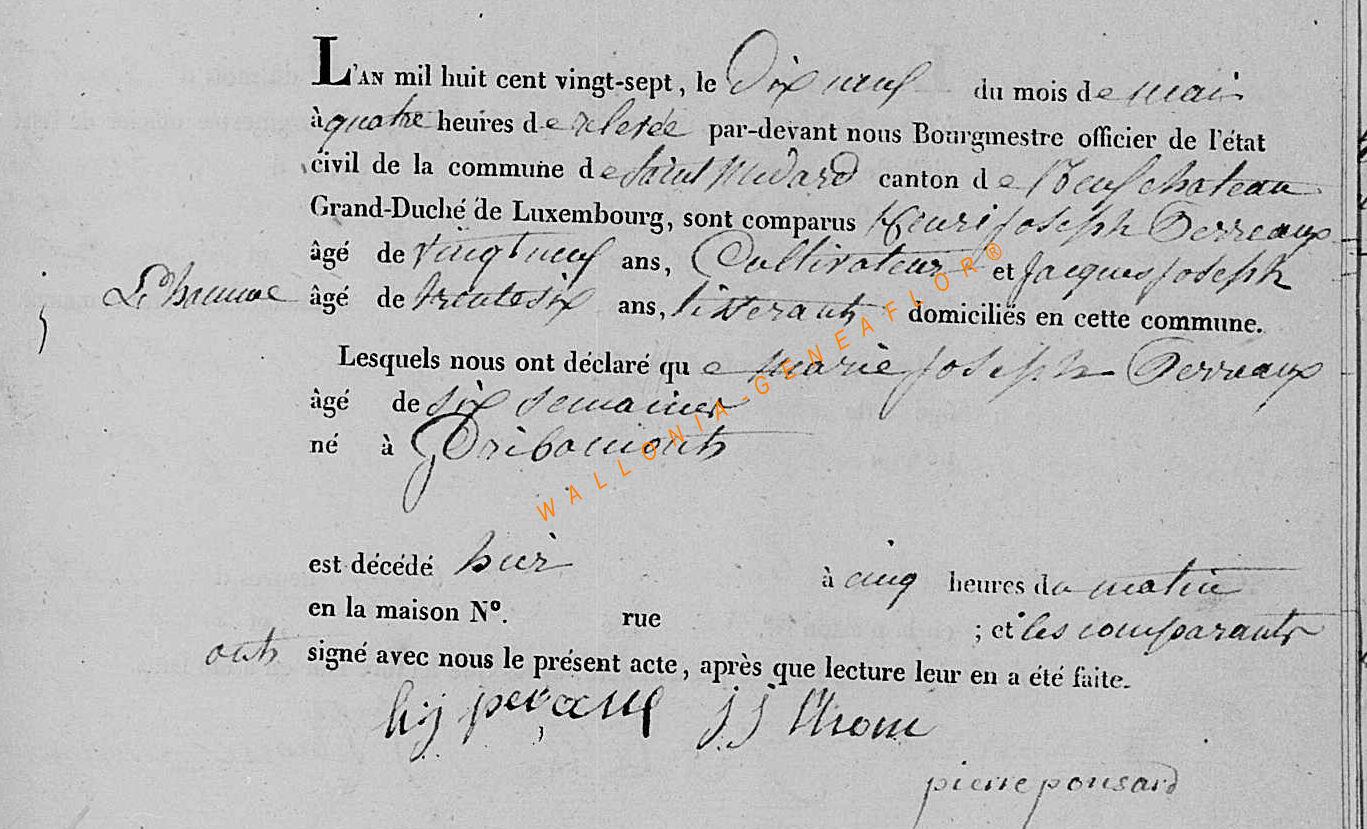 L'AN mil huit cent vingt-sept, le Dix neuf du mois de mai
à quatre heures de relevée par-devant nous Bourgmestre officier de l'état
civil de la commune de Saint Médard canton de Neufchateau
Grand-Duché de Luxembourg, sont comparus Henri joseph Perreaux
âgé de vingt neuf ans, Cultivateur et jacques joseph
âgé de trente six ans, domiciliés en cette commune.
Lesquels nous ont déclaré que marie joseph Perreaux
âgé de six semaines
né à Gribomont
est décédé hier à cinq heures du matin
en la maison N°. rue ; et les comparants
ont signé avec nous le présent acte, après que lecture leur en a été faite.
h j
j j
pierre ponsard
WALLONIA-GENEAFLOR®